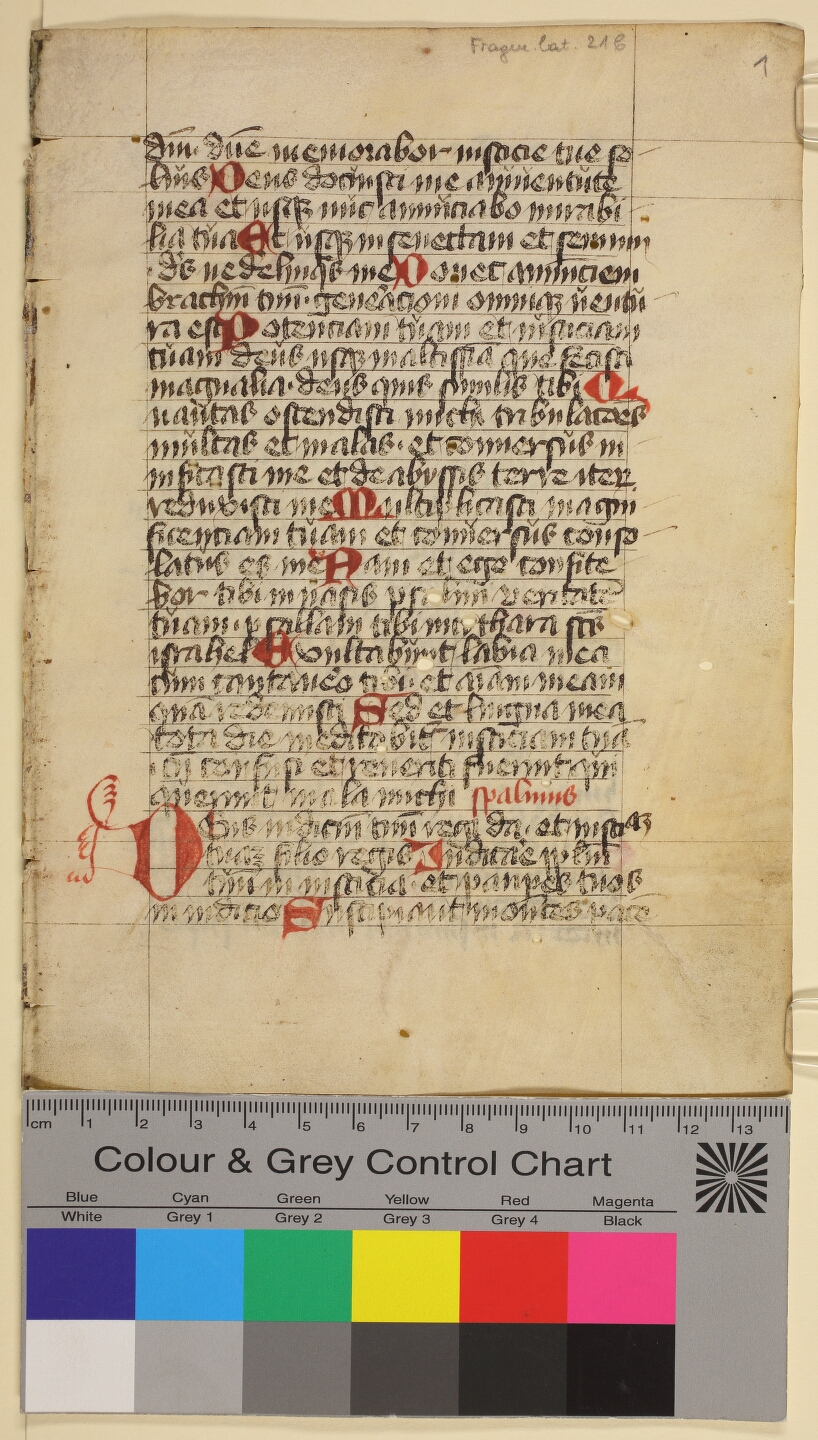 Fragm. lat. 216
1
dm̄. dn̄e memorabor iusticie tue so
liūs Deus docuisti me a iuuentute
mea et usqꝫ nūc annunciabo mirabi
lia tua Et usqꝫ in senectam et senium
ds ne delinq̄s me Donec annunciem
brachiū tuū. generacioni omni uentu
ra est Potenciam tuam et iusticiam
tuam deus usqꝫ in altissīa que fecisti
magnalia. deus quis similis tibi Q
uantas ostendisti michi tribulacōes
multas et malas. et conuersus
iuificasti me et de abyssis terre iteꝝ
reduxisti me Multiplicasti magni
ficenciam tuam et conuersus conso
latus es me Nam et ego confite
bor tibi in uasis psalmi veritatē
tuam. psallam tibi in cythara sc̄s
israhel Exultabunt labia mea
cum cantauero tibi. et aīam meam
quā redemisti Sed et lingua mea
tota die meditabit iusticiam tuā
cū confusi et reueriti fuerint qui
querunt mala michi spalmus
Deus iudiciū tuū regi da. et iusticiā
tuaꝫ filio regis Iudicare pplm̄
tuū in iusticia. et pauperes tuos
in iudicio Suscipiant montes pacē
cm 1 2 3 4 5 6 7 8 9 10 11 12 13
Colour & Grey Control Chart
Blue Cyan Green Yellow Red Magenta
White Grey 1 Grey 2 Grey 3 Grey 4 Black